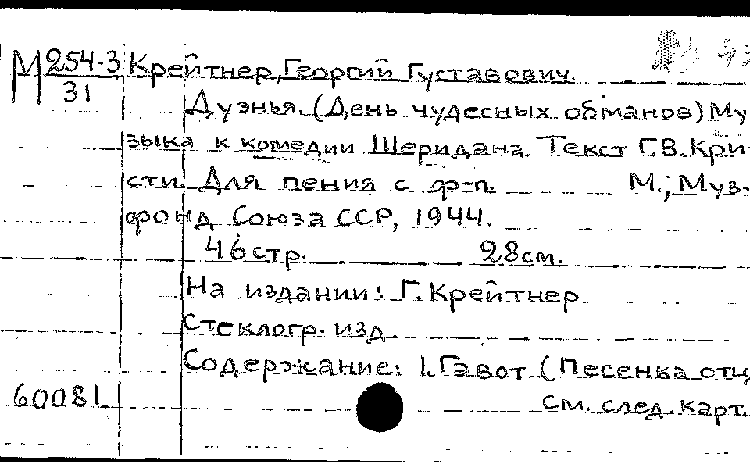 М 254-3 Крейтнер, Георгий Густавович
31
Дуэнья (День чудесных обманов) Му
зыка к комедии Шеридана. Текст Г.В. Кри
сти. Для пения с ф-п. М., Муз-
фонд Союза ССР, 1944.
46 стр. 28 см.
На издании: Г. Крейтнер
Стеклогр. изд.
Содержание: 1. Гавот (Песенка отц
60081 см. след. карт.